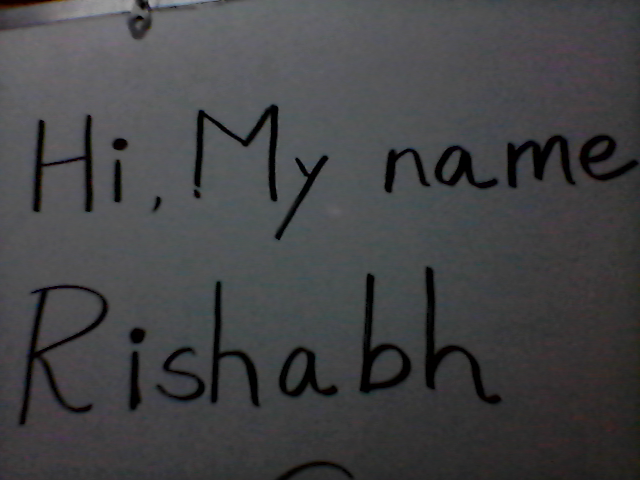 Hi, My name
Rishabh